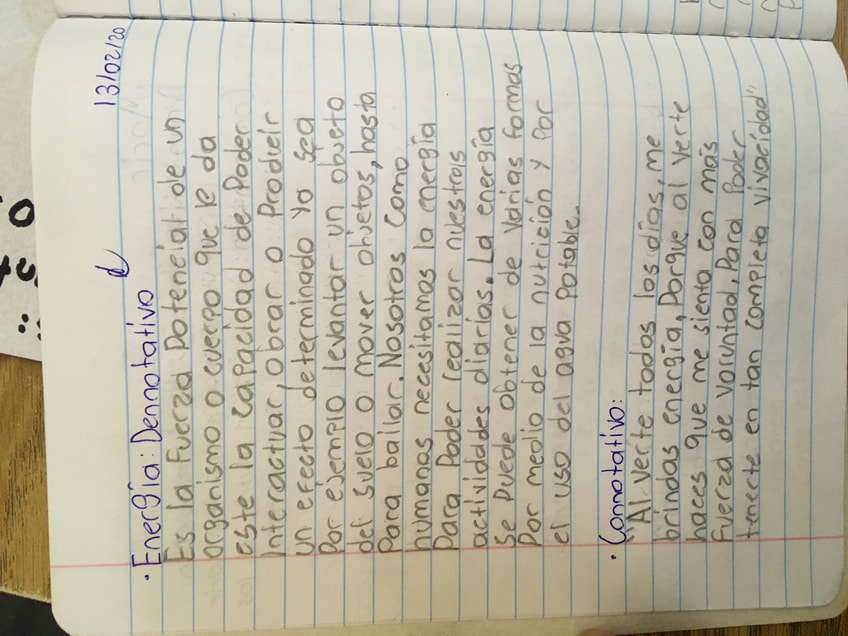 13/02/20
· Energía: Dennotativo
Es la fuerza potencial de un
organismo o cuerpo que le da
este la capacidad de Poder
interactuar, obrar o Producir
un efecto determinado Ya sea
Por ejemplo levantar un objeto
del suelo o mover objetos, hasta
Para bailar. Nosotros como
humanos necesitamos la energía
Para Poder realizar nuestras
actividades diarias. La energía
se Puede obtener de varias formas
Por medio de la nutrición y Por
el uso del agua Potable.
· Connotativo:
"Al verte todos los días, me
brindas energía, Porque al verte
haces que me sienta con más
fuerza de voluntad, Para Poder
tenerte en tan completa vivacidad"